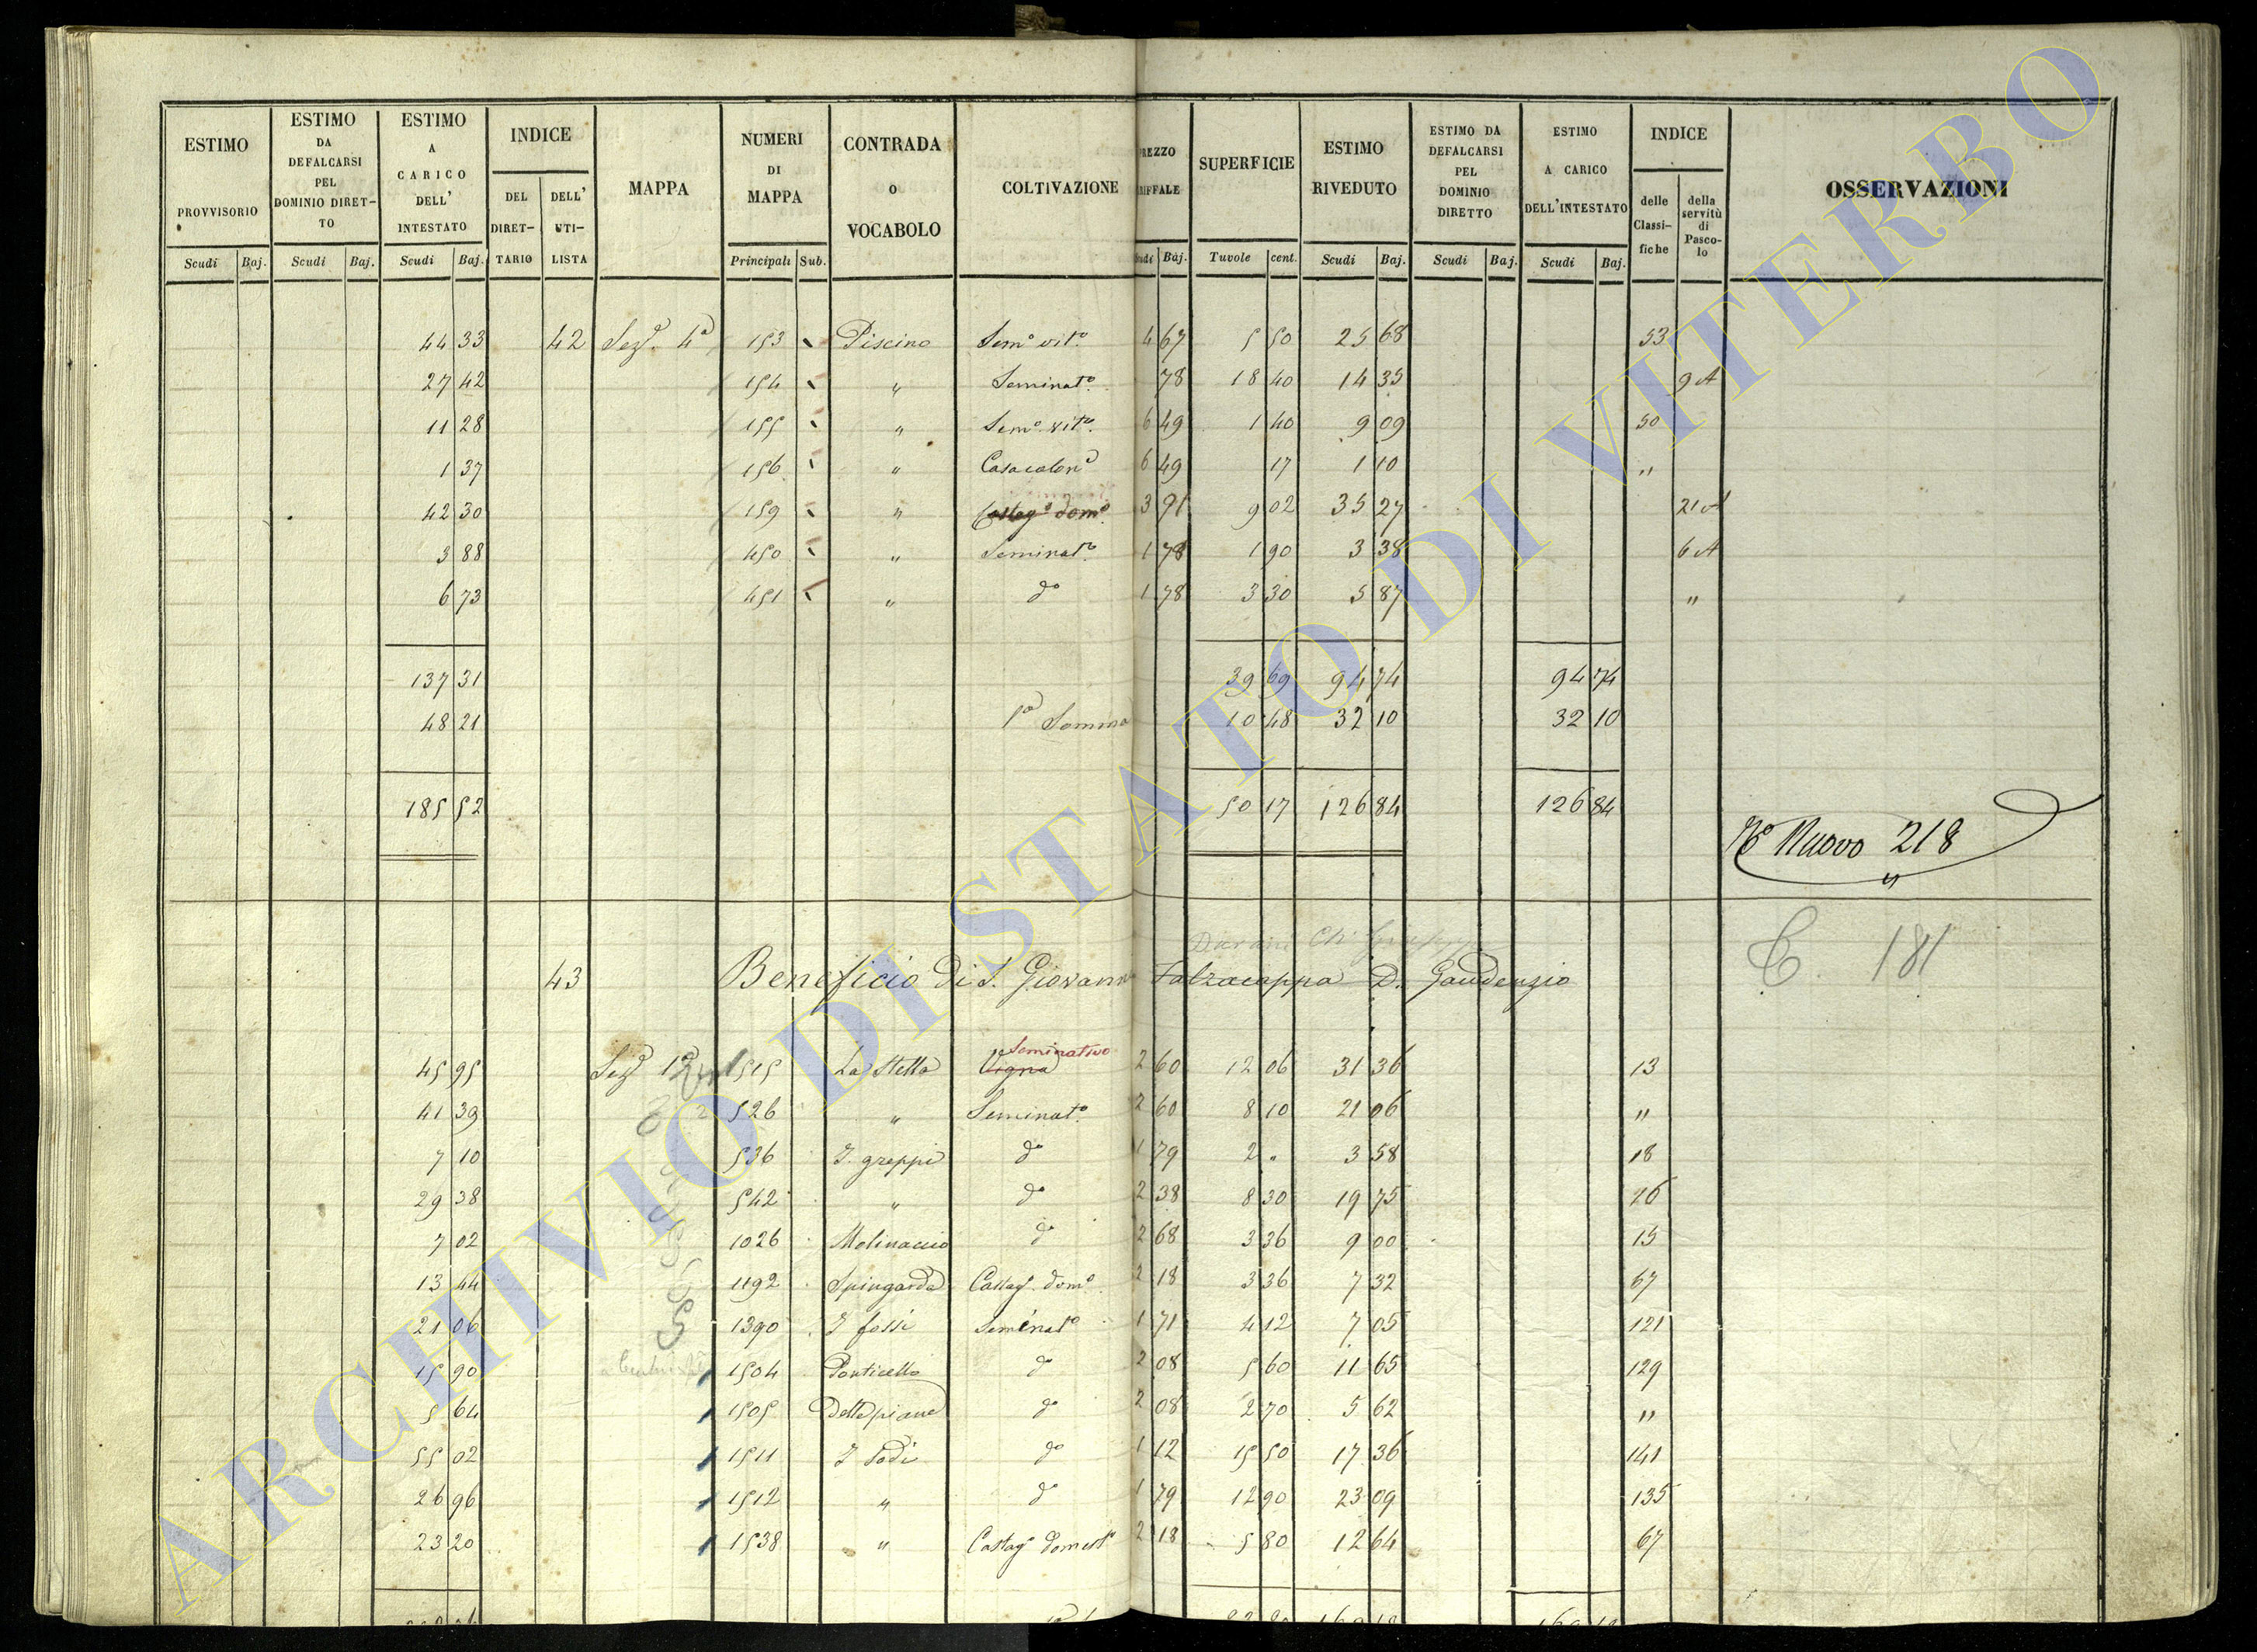 ESTIMO PROVVISORIO Scudi Baj.
ESTIMO DA DEFALCARSI PEL DOMINIO DIRET-TO Scudi Baj.
ESTIMO A CARICO DELL' INTESTATO Scudi Baj.
INDICE DEL DIRET-TARIO DELL' UTI-LISTA
MAPPA
NUMERI DI MAPPA Principali Sub.
CONTRADA o VOCABOLO
COLTIVAZIONE
PREZZO Baj.
SUPERFICIE Tavole cent.
ESTIMO RIVEDUTO Scudi Baj.
ESTIMO DA DEFALCARSI PEL DOMINIO DIRETTO Scudi Baj.
ESTIMO A CARICO DELL'INTESTATO Scudi Baj.
INDICE delle Classi-fiche della servitù di Pasco-lo
OSSERVAZIONI
44 33 42 Sez.e 4a 153 Piscino Sem.o vit.o 4 67 5 50 25 68 53
27 42 154 " Seminat.o 78 18 40 14 35 9 A
11 28 155 " Sem.o vit.o 6 49 1 40 9 09 50
1 37 156 " Casa colon.a 6 49 17 1 10 "
42 30 159 " Castag.o dom.o 3 91 9 02 35 27 21 A
3 88 450 " Seminat.o 1 78 1 90 3 38 6 A
6 73 451 " do 1 78 3 30 5 87 "
137 31 39 69 94 74 94 74
48 21 1a Somma 10 48 32 10 32 10
185 52 50 17 126 84 126 84
No Nuovo 218
"
43 Beneficio di S. Giovanni Falzacappa D. Gaudenzio
C 181
Seminativo
45 95 Sez.e 1a 1515 La Stella Vigna 2 60 12 06 31 36 13
41 39 2 526 " Seminat.o 2 60 8 10 21 06 "
7 10 536 I greppi do 1 79 2 " 3 58 18
29 38 542 " do 2 38 8 30 19 75 26
7 02 1026 Molinaccio do 2 68 3 36 9 00 15
13 44 1192 Spingarda Castag. dom.o 2 18 3 36 7 32 67
21 06 1390 I fossi Seminat.o 1 71 4 12 7 05 121
15 90 1504 Ponticello do 2 08 5 60 11 65 129
5 64 1505 Delle piane do 2 08 2 70 5 62 "
55 02 1511 I Podi do 1 12 15 50 17 36 141
26 96 1512 " do 1 79 12 90 23 09 135
23 20 1538 " Castag.o domest.o 2 18 5 80 12 64 67
ARCHIVIO DI STATO DI VITERBO